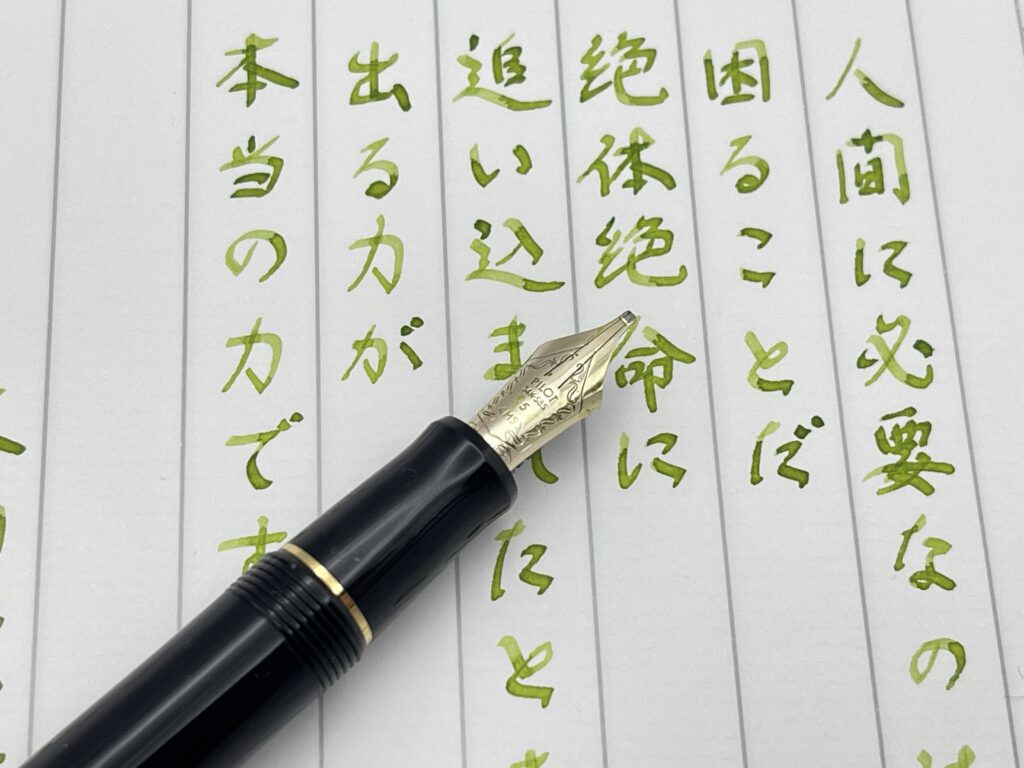 人間に必要なの
困ることだ
絶体絶命に
追い込ま たと
出る力が
本当の力です
PILOT
14K-585
5
MS